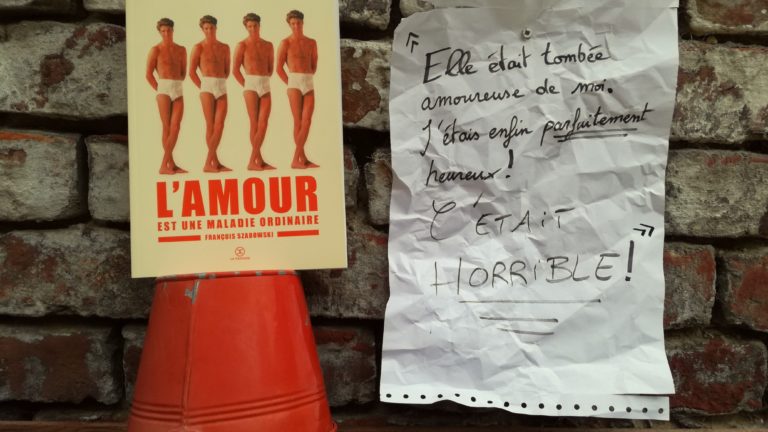 L'AMOUR
EST UNE MALADIE ORDINAIRE
FRANÇOIS SZABOWSKI
« Elle était tombée
amoureuse de moi.
J'étais enfin parfaitement
heureux !
C'ÉTAIT
HORRIBLE ! »